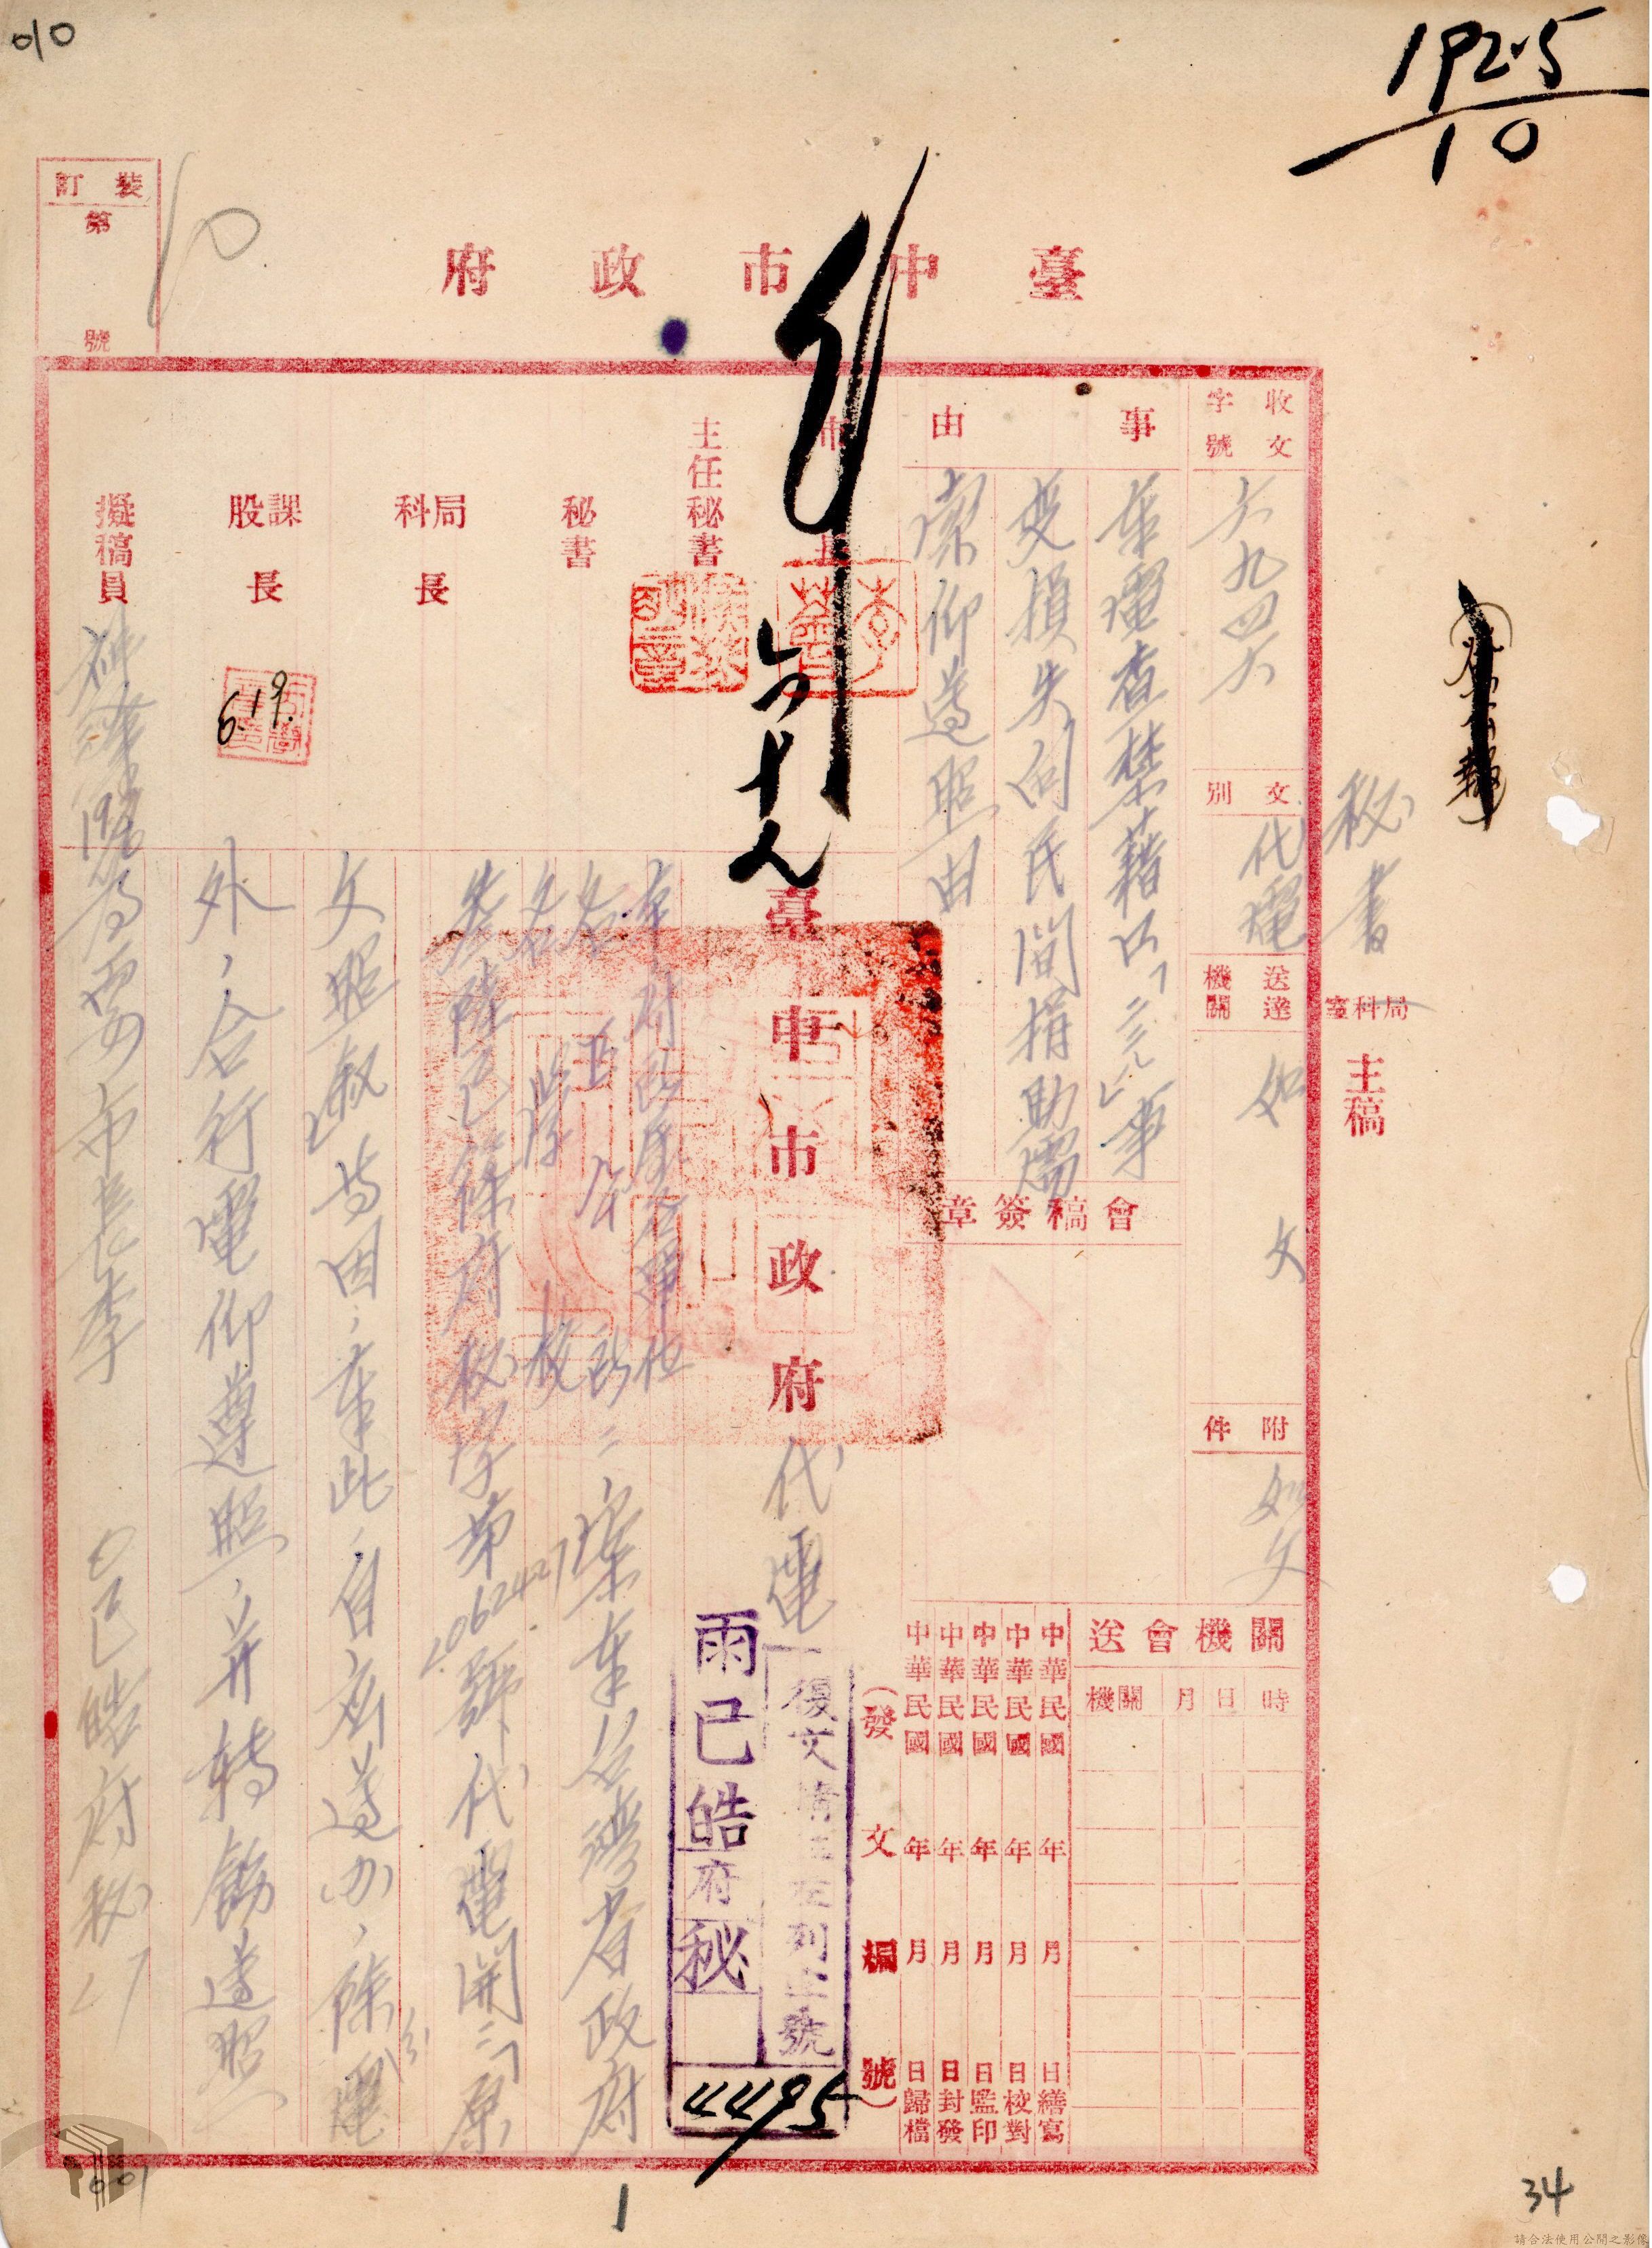 010
192.5
10
裝訂
第
號
10
臺中市政府
收文字號
六九四六
文別
代電
送達機關
如文
附件
如文
秘書
局科室
主稿
事由
奉電查禁藉口「二二八」事
變損失向民間捐助需
索仰遵照由
會稿簽章
關機會送
時日月關機
中華民國年月日繕寫
中華民國年月日校對
中華民國年月日監印
中華民國年月日封發
中華民國年月日歸檔
(發文編號)
市長
六、十九
主任秘書
秘書
局科長
課股長
6.19.
擬稿員
臺中市政府代電
復文請註左列字號
雨已皓府秘
4495
本府所屬各單位
各區公所
各學校
二、案奉台灣省政府
叁陸已篠府秘字第
206242
號代電開:「原
文照敘」等因,奉此,自應遵辦,除分電
外,合行電仰遵照,并轉飭遵照
為要市長李
已皓府秘
1
001
34
請合法使用公開之影像